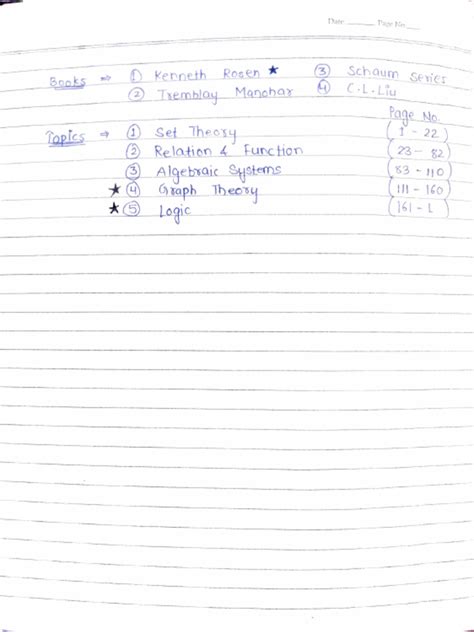 Date ______ Page No. ___
Books ⇒ ① Kenneth Rosen ★ ③ Schaum Series
② Tremblay Manohar ④ C-L-Liu
Page No.
Topics ⇒ ① Set Theory (1 - 22)
② Relation & Function (23 - 82)
③ Algebraic Systems (83 - 110)
★ ④ Graph Theory (111 - 160)
★ ⑤ Logic (161 - L)